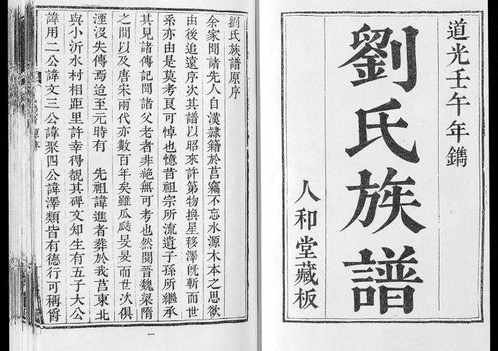 道光壬午年鐫
劉氏族譜
人和堂藏板
劉氏族譜原序
余家聞諸先人自漢隸籍於莒竊不忘水源木本之思欲
由後追遠序次其譜以昭來許第物換星移澤旣斬而世
系亦由是莫考良可悼也憶昔祖宗所流遺子孫所繼承
其見諸傳記聞諸父老者非絕無可考也然閱晉魏梁隋
之間以及唐宋兩代亦數百年矣雖瓜瓞旻旻而世次俱
湮沒失傳焉迨至元時有 先祖諱進者葬於我莒東北
與小沂水村相距里許幸得覩其碑文知生有五子大公
諱用二公諱文三公諱聚四公諱澤類皆有德行可稱爵
一